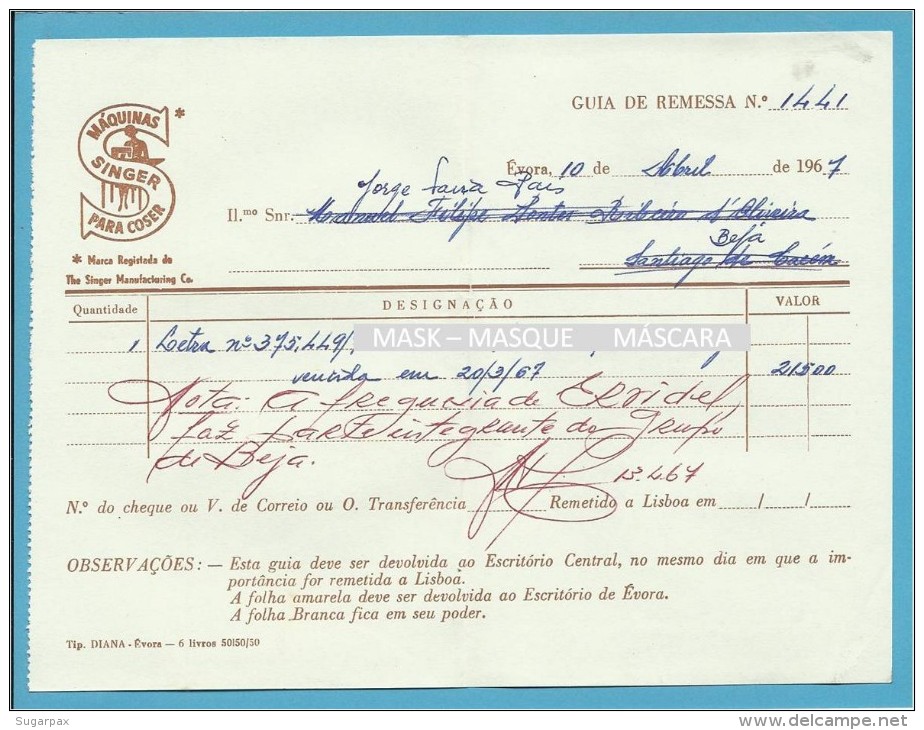 GUIA DE REMESSA N.º 1441
MÁQUINAS
SINGER
PARA COSER
*
Évora, 10 de Abril de 1967
Jorge Faria Pais
Il.mo Snr. Manuel Filipe Pontes Ribeiro d'Oliveira
Beja
Santiago de Cacém
* Marca Registada de
The Singer Manufacturing Co.
Quantidade DESIGNAÇÃO VALOR
1 Letra nº 375.449/
MASK – MASQUE MÁSCARA
vencida em 20/3/67 21500
Nota: A freguesia de Ervidel
faz parte integrante do Grupo
de Beja.
13.4.67
N.º do cheque ou V. de Correio ou O. Transferência Remetido a Lisboa em / /
OBSERVAÇÕES: — Esta guia deve ser devolvida ao Escritório Central, no mesmo dia em que a im-
portância for remetida a Lisboa.
A folha amarela deve ser devolvida ao Escritório de Évora.
A folha Branca fica em seu poder.
Tip. DIANA - Évora — 6 livros 50|50/50
Sugarpax
www.delcampe.net